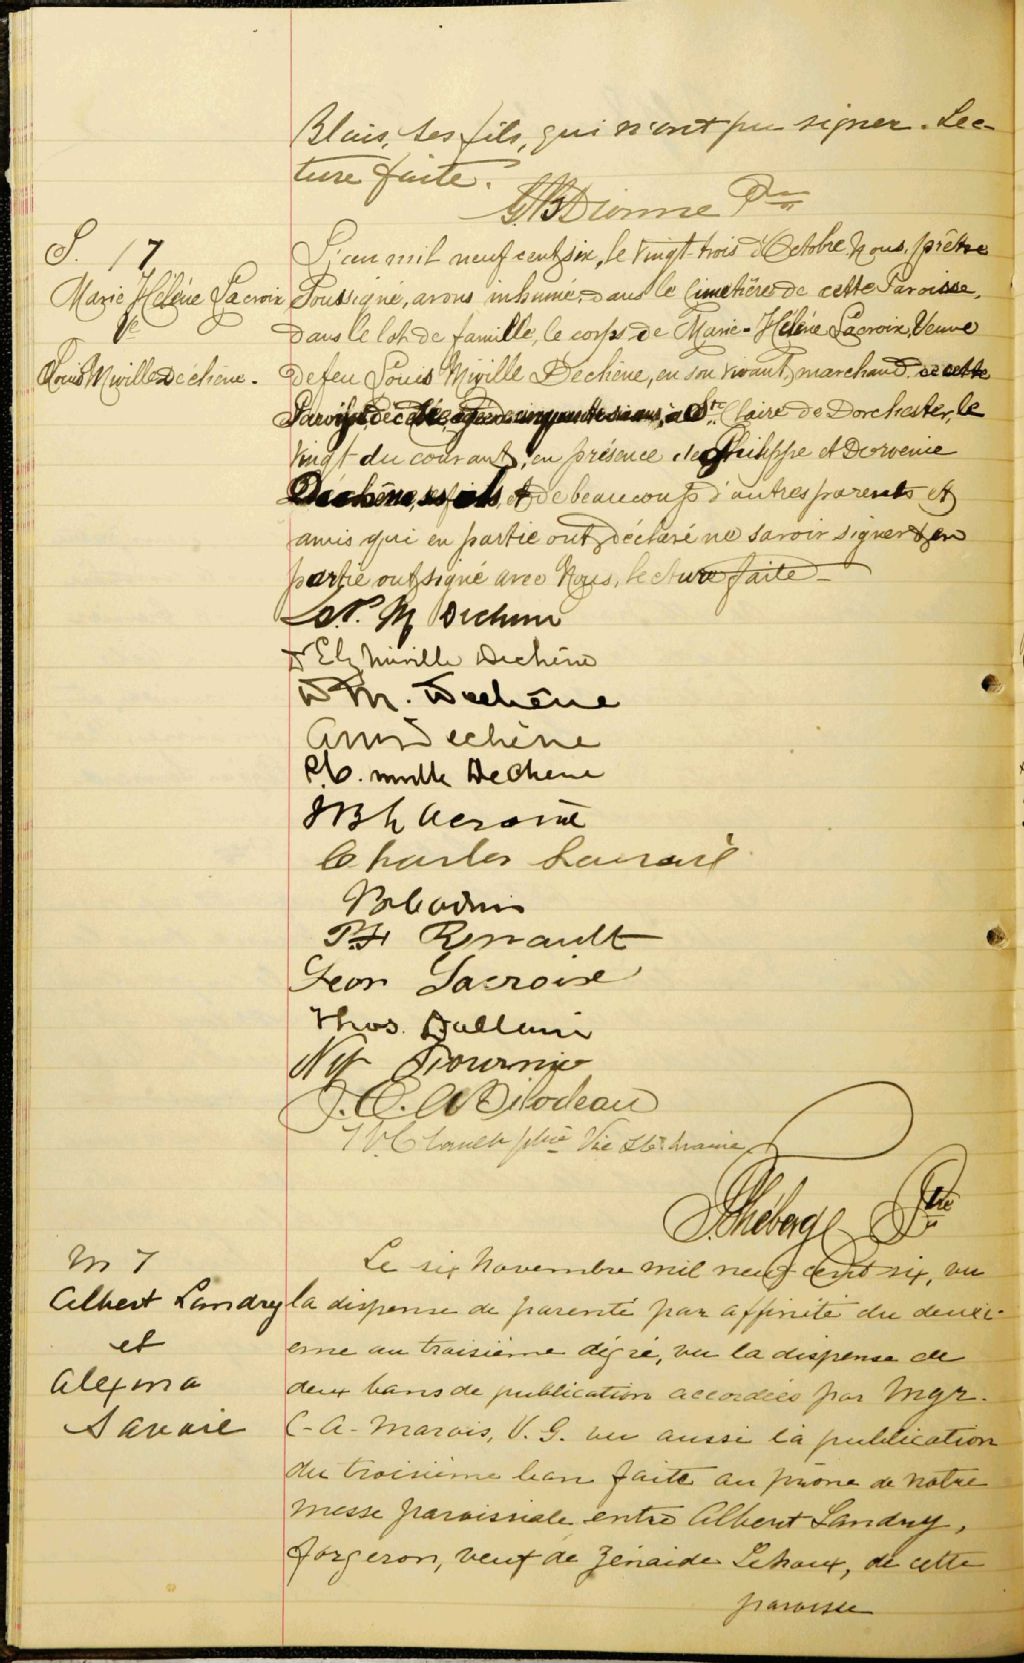 Blais, ses fils, qui n'ont pu signer. Lec-
ture faite.
G.B Dionne Ptre
S. 17
Marie Hélène Lacroix
Ve
Louis Miville Dechêne.
L'an mil neuf cent six, le vingt-trois d'Octobre Nous, prêtre
Soussigné, avons inhumé dans le Cimetière de cette Paroisse,
dans le lot de famille, le corps de Marie-Hélène Lacroix, Veuve
de feu Louis Miville Dechêne, en son vivant, marchand de cette
Paroisse, décédée, agée de cinquante six ans, à Ste Claire de Dorchester, le
vingt du courant, en présence de Philippe et Dorvenie
Dechêne, ses fils, et de beaucoup d'autres parents et
amis qui en partie ont déclaré ne savoir signer & en
partie ont signé avec Nous, lecture faite_
P. M Dechene
Elz Miville Dechêne
D M. Dechêne
Dechêne
P.C. Miville Dechene
J B Lacroix
Charles Lacroix
P.F. Renault
Leon Lacroix
Thos. Dallaire
Fournier
J. E. A Bilodeau
ptre Vic Ste Marie
J. Théberge Ptre
M 7
Albert Landry
et
Alexina
Savoie
Le six Novembre mil neuf cent six, vu
la dispense de parenté par affinité du deuxi-
ème au troisième dégré, vu la dispense de
deux bans de publication accordées par Mgr.
C-A-Marois, V. G. vu aussi la publication
du troisième ban faite au prône de notre
messe paroissiale entre Albert Landry,
forgeron, veuf de Zénaide Lehoux, de cette
paroisse